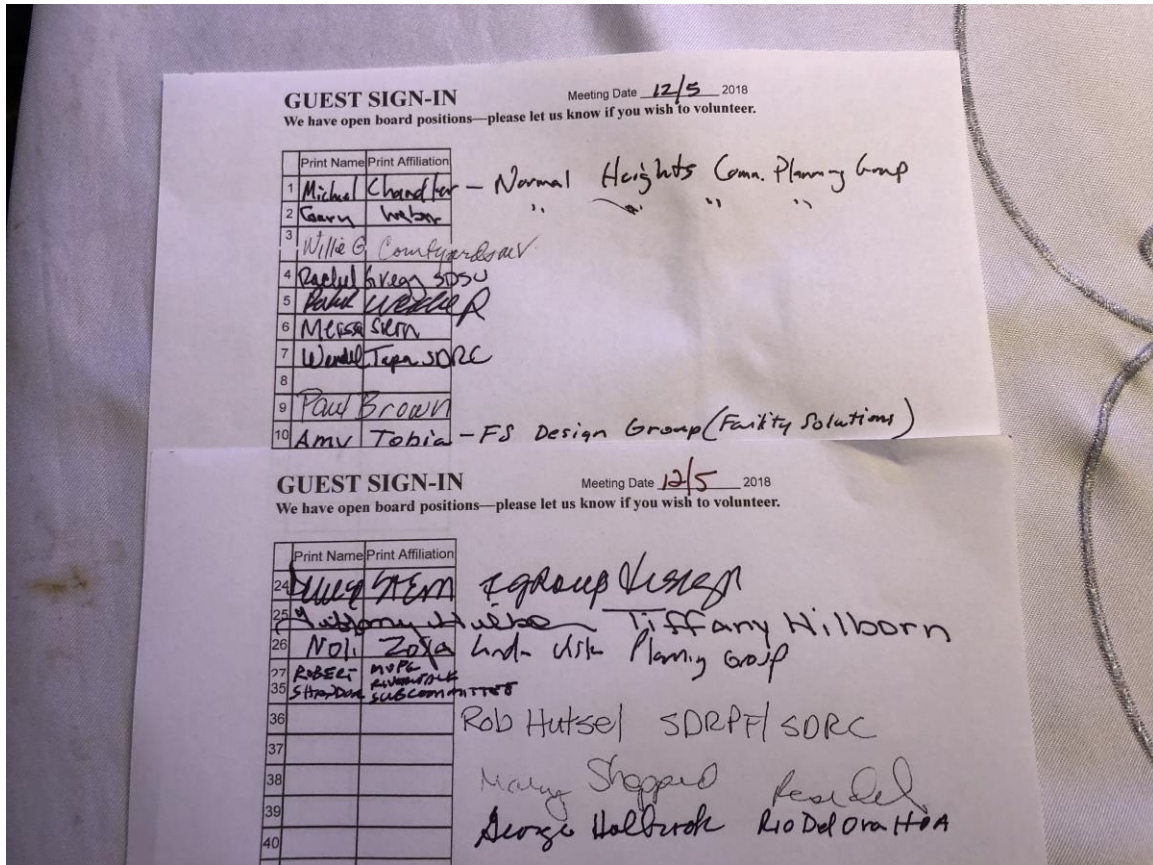 GUEST SIGN-IN Meeting Date 12/5 2018
We have open board positions—please let us know if you wish to volunteer.
Print Name Print Affiliation
1 Michael Chandler - Normal Heights Comm. Planning Group
2 Gary Weber " " " "
3 Willie G Courtyards MV
4 Rachel Gregg SDSU
5 
6 Stern
7 Wendel SDRC
8
9 Paul Brown
10 Amy Tobia - FS Design Group (Facility Solutions)
GUEST SIGN-IN Meeting Date 12/5 2018
We have open board positions—please let us know if you wish to volunteer.
Print Name Print Affiliation
24 Stern
25 Tiffany Hilborn
26 Linda Vista Planning Group
27 ROBERT MVPG
35 SUBCOMMITTEE
36 Rob Hutsel SDRPF/SDRC
37
38 Sheppard
39 George Holbrook Rio Del Oro HOA
40